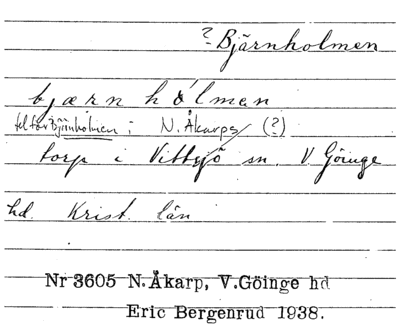 ? Bjärnholmen
bjærn hólmen
fel för Björnholmen i N. Åkarps (?)
torp i Vittsjö sn. V. Göinge
hd. Krist. län
Nr 3605 N. Åkarp, V. Göinge hd
Eric Bergenrud 1938.